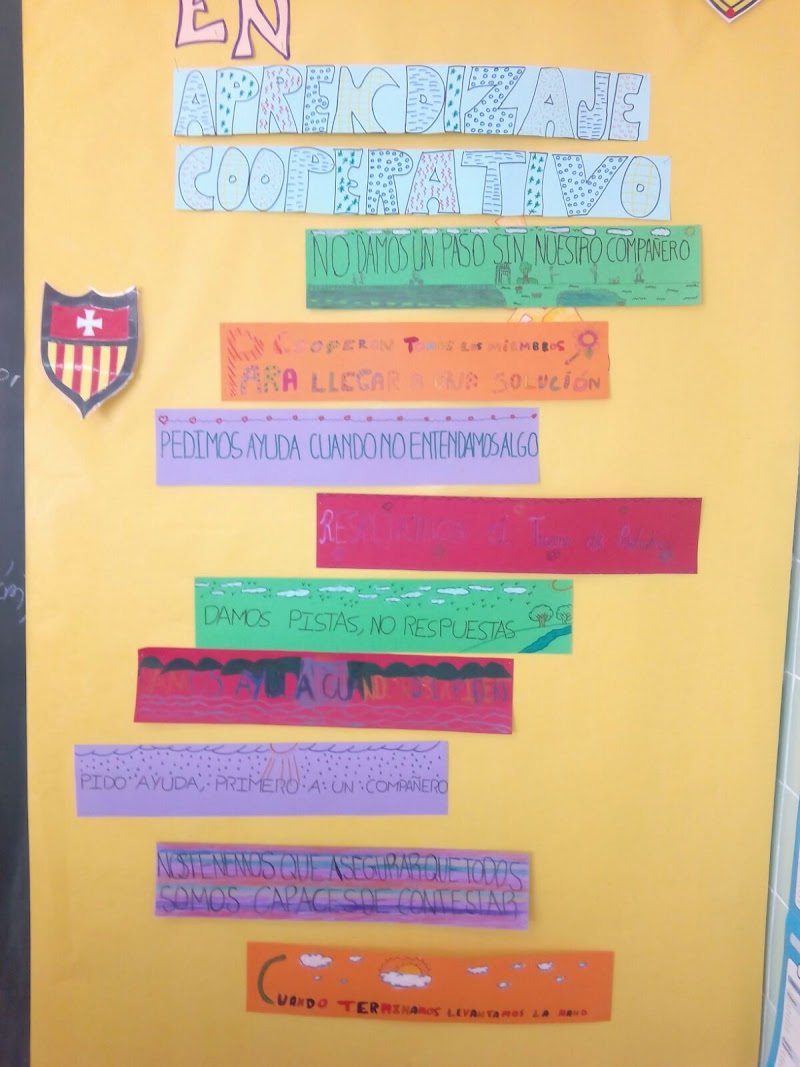 EN
APRENDIZAJE
COOPERATIVO
NO DAMOS UN PASO SIN NUESTRO COMPAÑERO
COOPERAN TODOS LOS MIEMBROS
PARA LLEGAR A UNA SOLUCIÓN
PEDIMOS AYUDA CUANDO NO ENTENDAMOS ALGO
RESPETAMOS el Turno de Palabra
DAMOS PISTAS, NO RESPUESTAS
DAMOS AYUDA CUANDO NOS LA PIDEN
PIDO AYUDA, PRIMERO A UN COMPAÑERO
NOS TENEMOS QUE ASEGURAR QUE TODOS
SOMOS CAPACES DE CONTESTAR
CUANDO TERMINAMOS LEVANTAMOS LA MANO